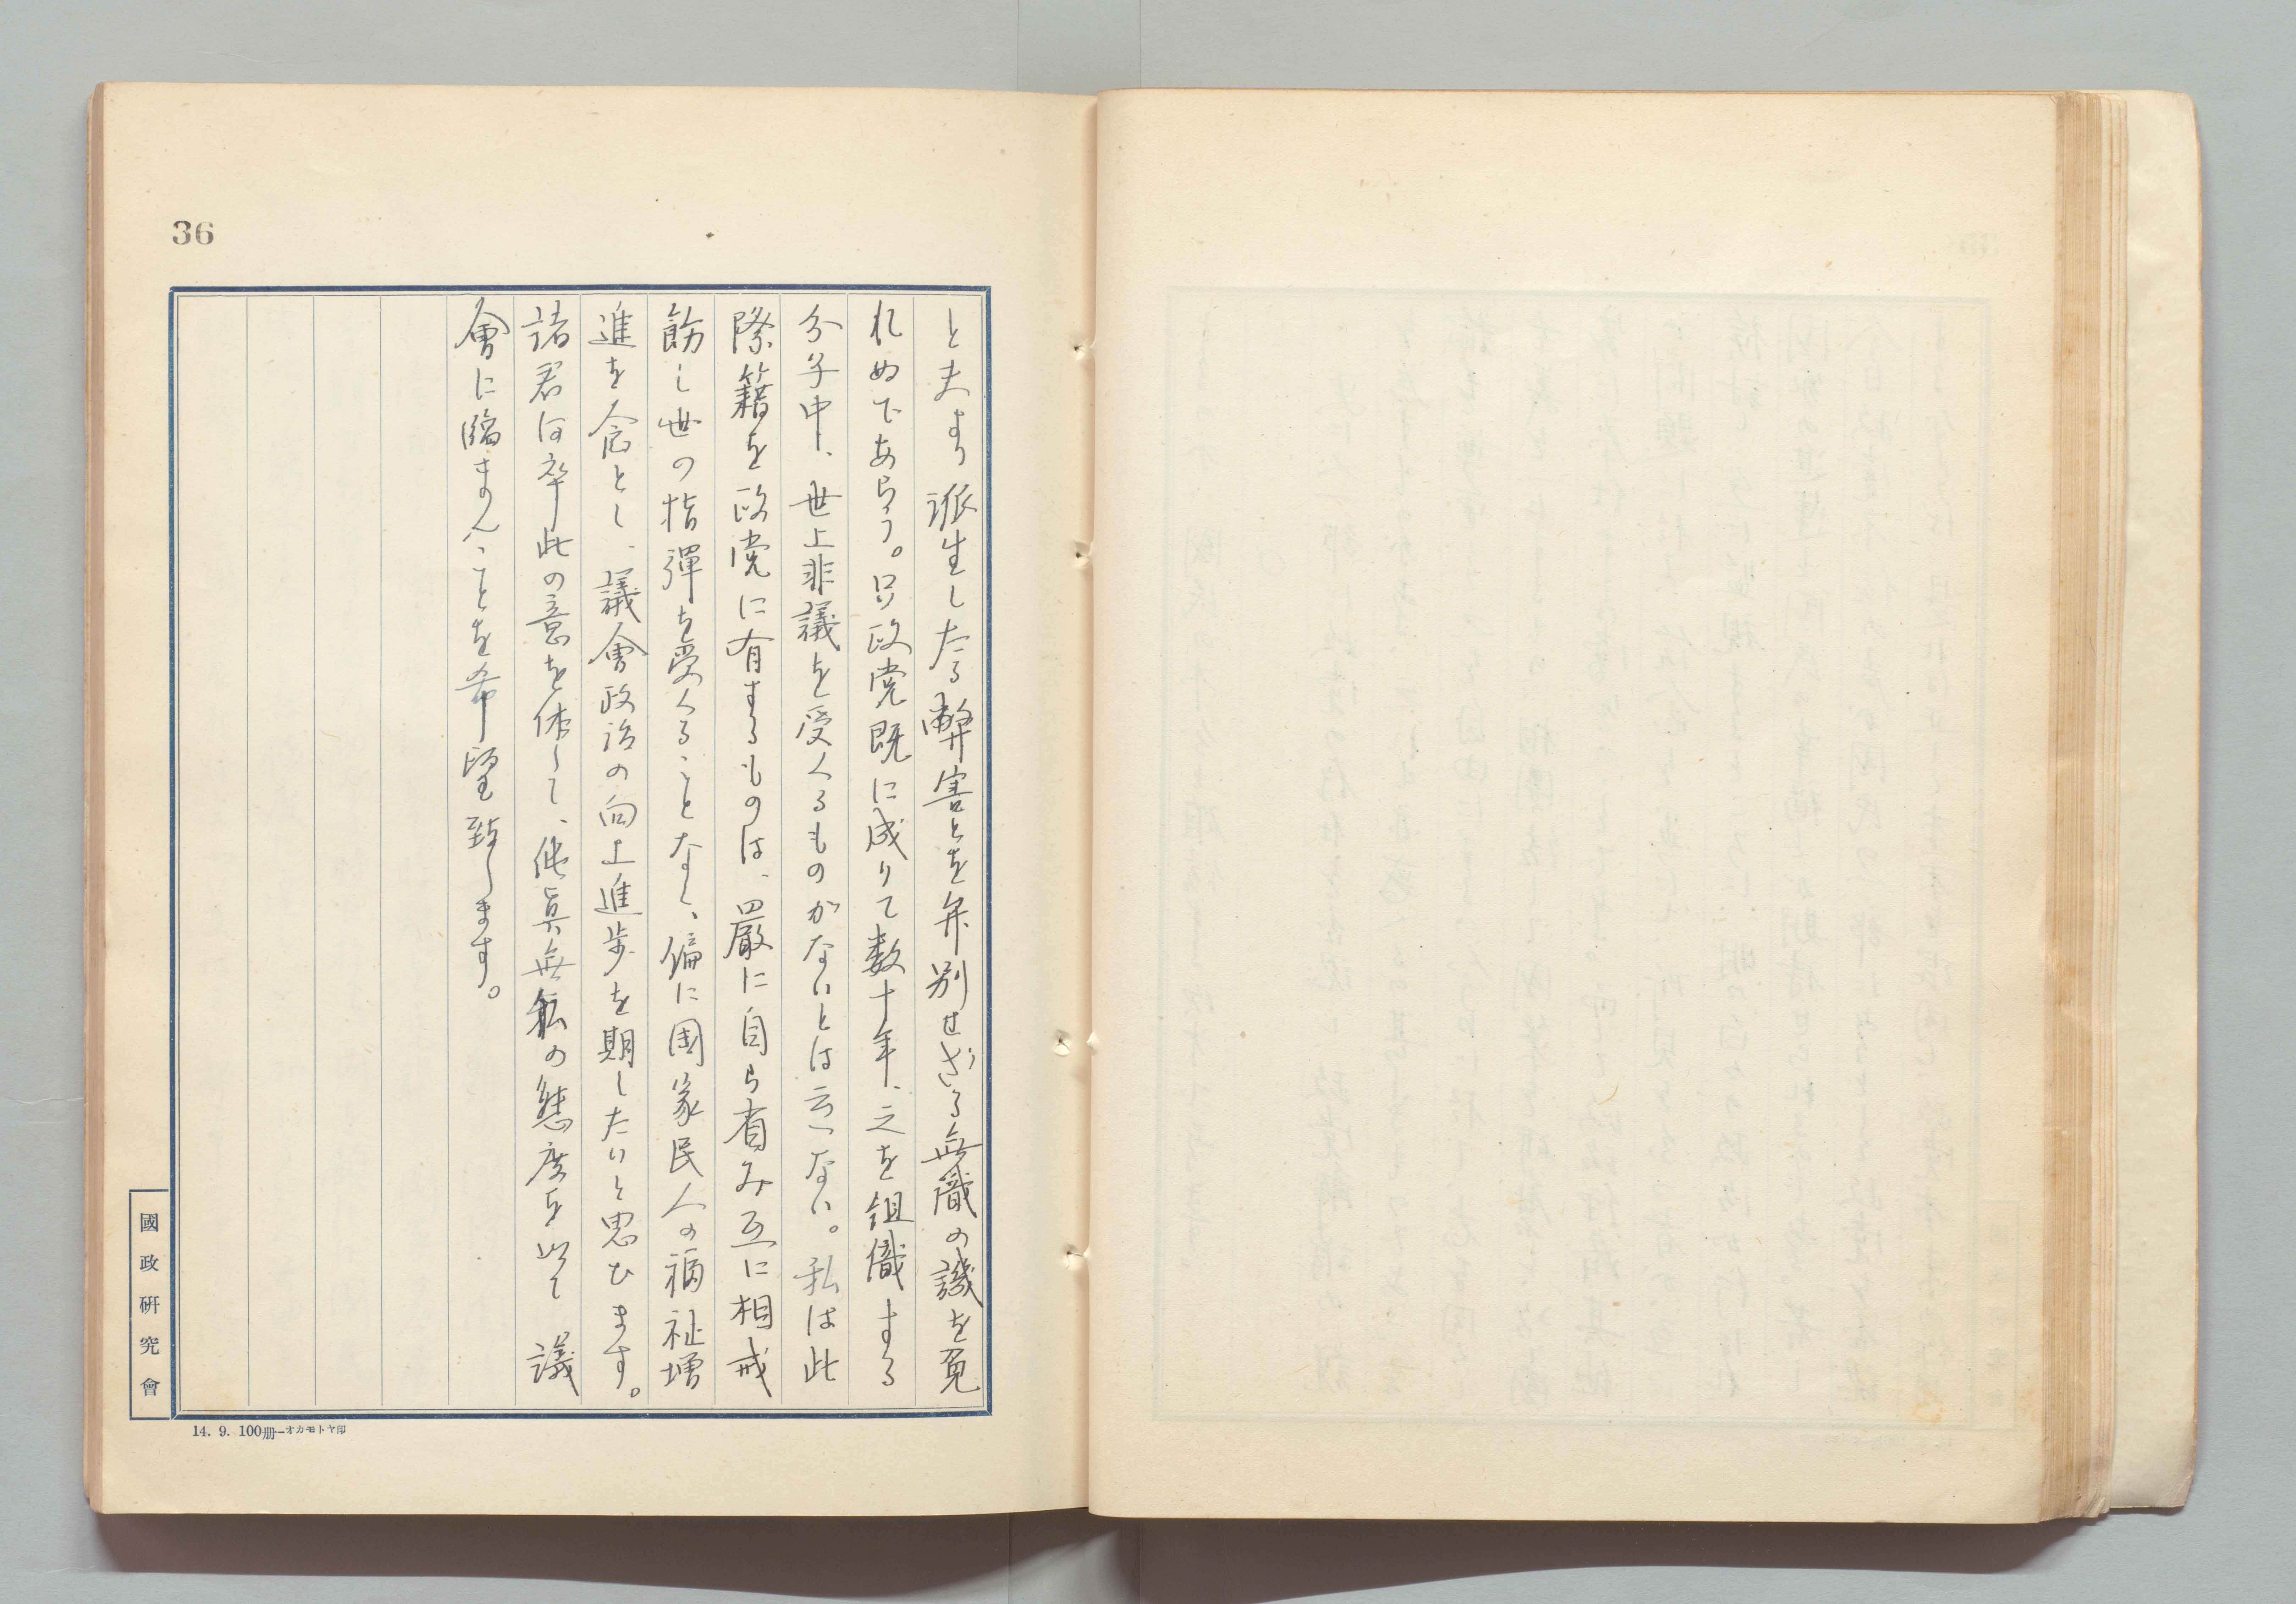 36
と夫より派生したる弊害とを弁別せざる無識の譏を免
れぬであらう。只政党既に成りて数十年、之を組織する
分子中、世上非議を受くるものがないとは云へない。私は此
際籍を政党に有するものは、厳に自ら省み互に相戒
飭し世の指弾を受くることなく、偏に国家民人の福祉増
進を念とし、議會政治の向上進歩を期したいと思ひます。
諸君は卒此の意を体して、純真無私の態度を以て議
會に臨まんことを希望致します。
國政研究會
14. 9. 100册—オカモトヤ印